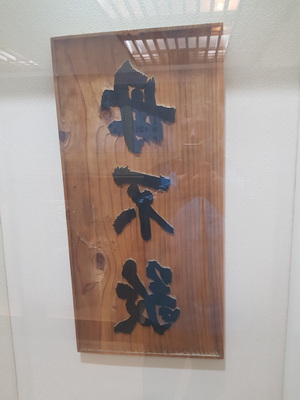 毋不敬